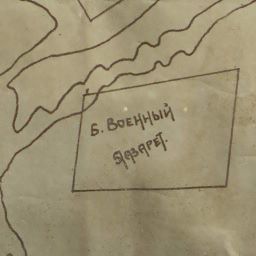 Б. ВОЕННЫЙ
ЛАЗАРЕТ.